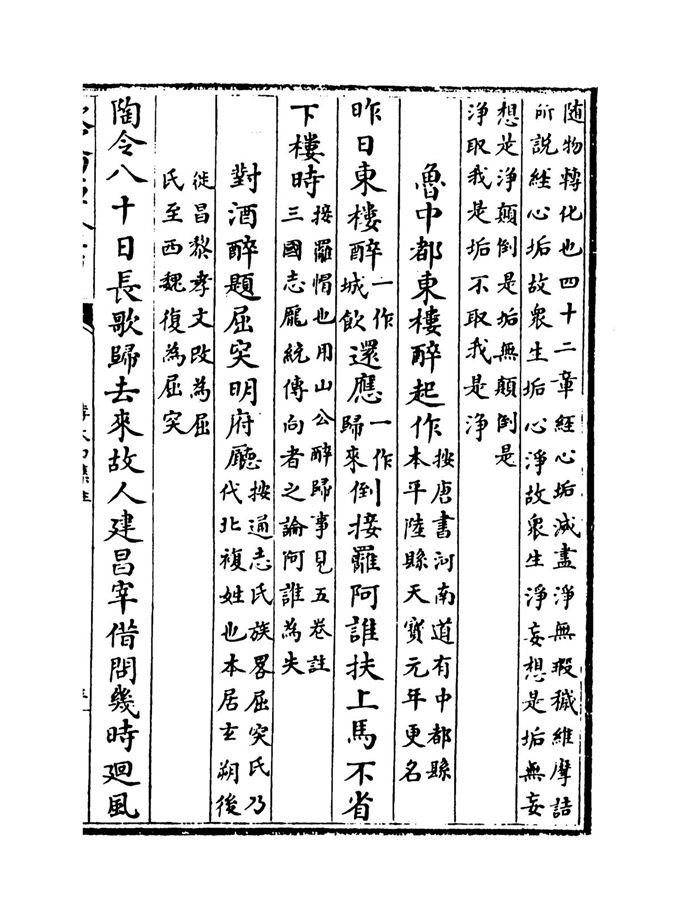 随物轉化也四十二章經心垢滅盡淨無瑕穢維摩詰
所說經心垢故衆生垢心淨故衆生淨妄想是垢無妄
想是淨顛倒是垢無顛倒是
淨取我是垢不取我是淨
魯中都東樓醉起作
按唐書河南道有中都縣
本平陸縣天寶元年更名
昨日東樓醉
一作
城飲
還應
一作
歸來
倒接䍦阿誰扶上馬不省
下樓時
接䍦帽也用山公醉歸事見五卷註
三國志龐統傳向者之論阿誰為失
對酒醉題屈突明府廳
按通志氏族畧屈突氏乃
代北複姓也本居玄朔後
徙昌黎孝文改為屈
氏至西魏復為屈突
陶令八十日長歌歸去來故人建昌宰借問幾時廻風